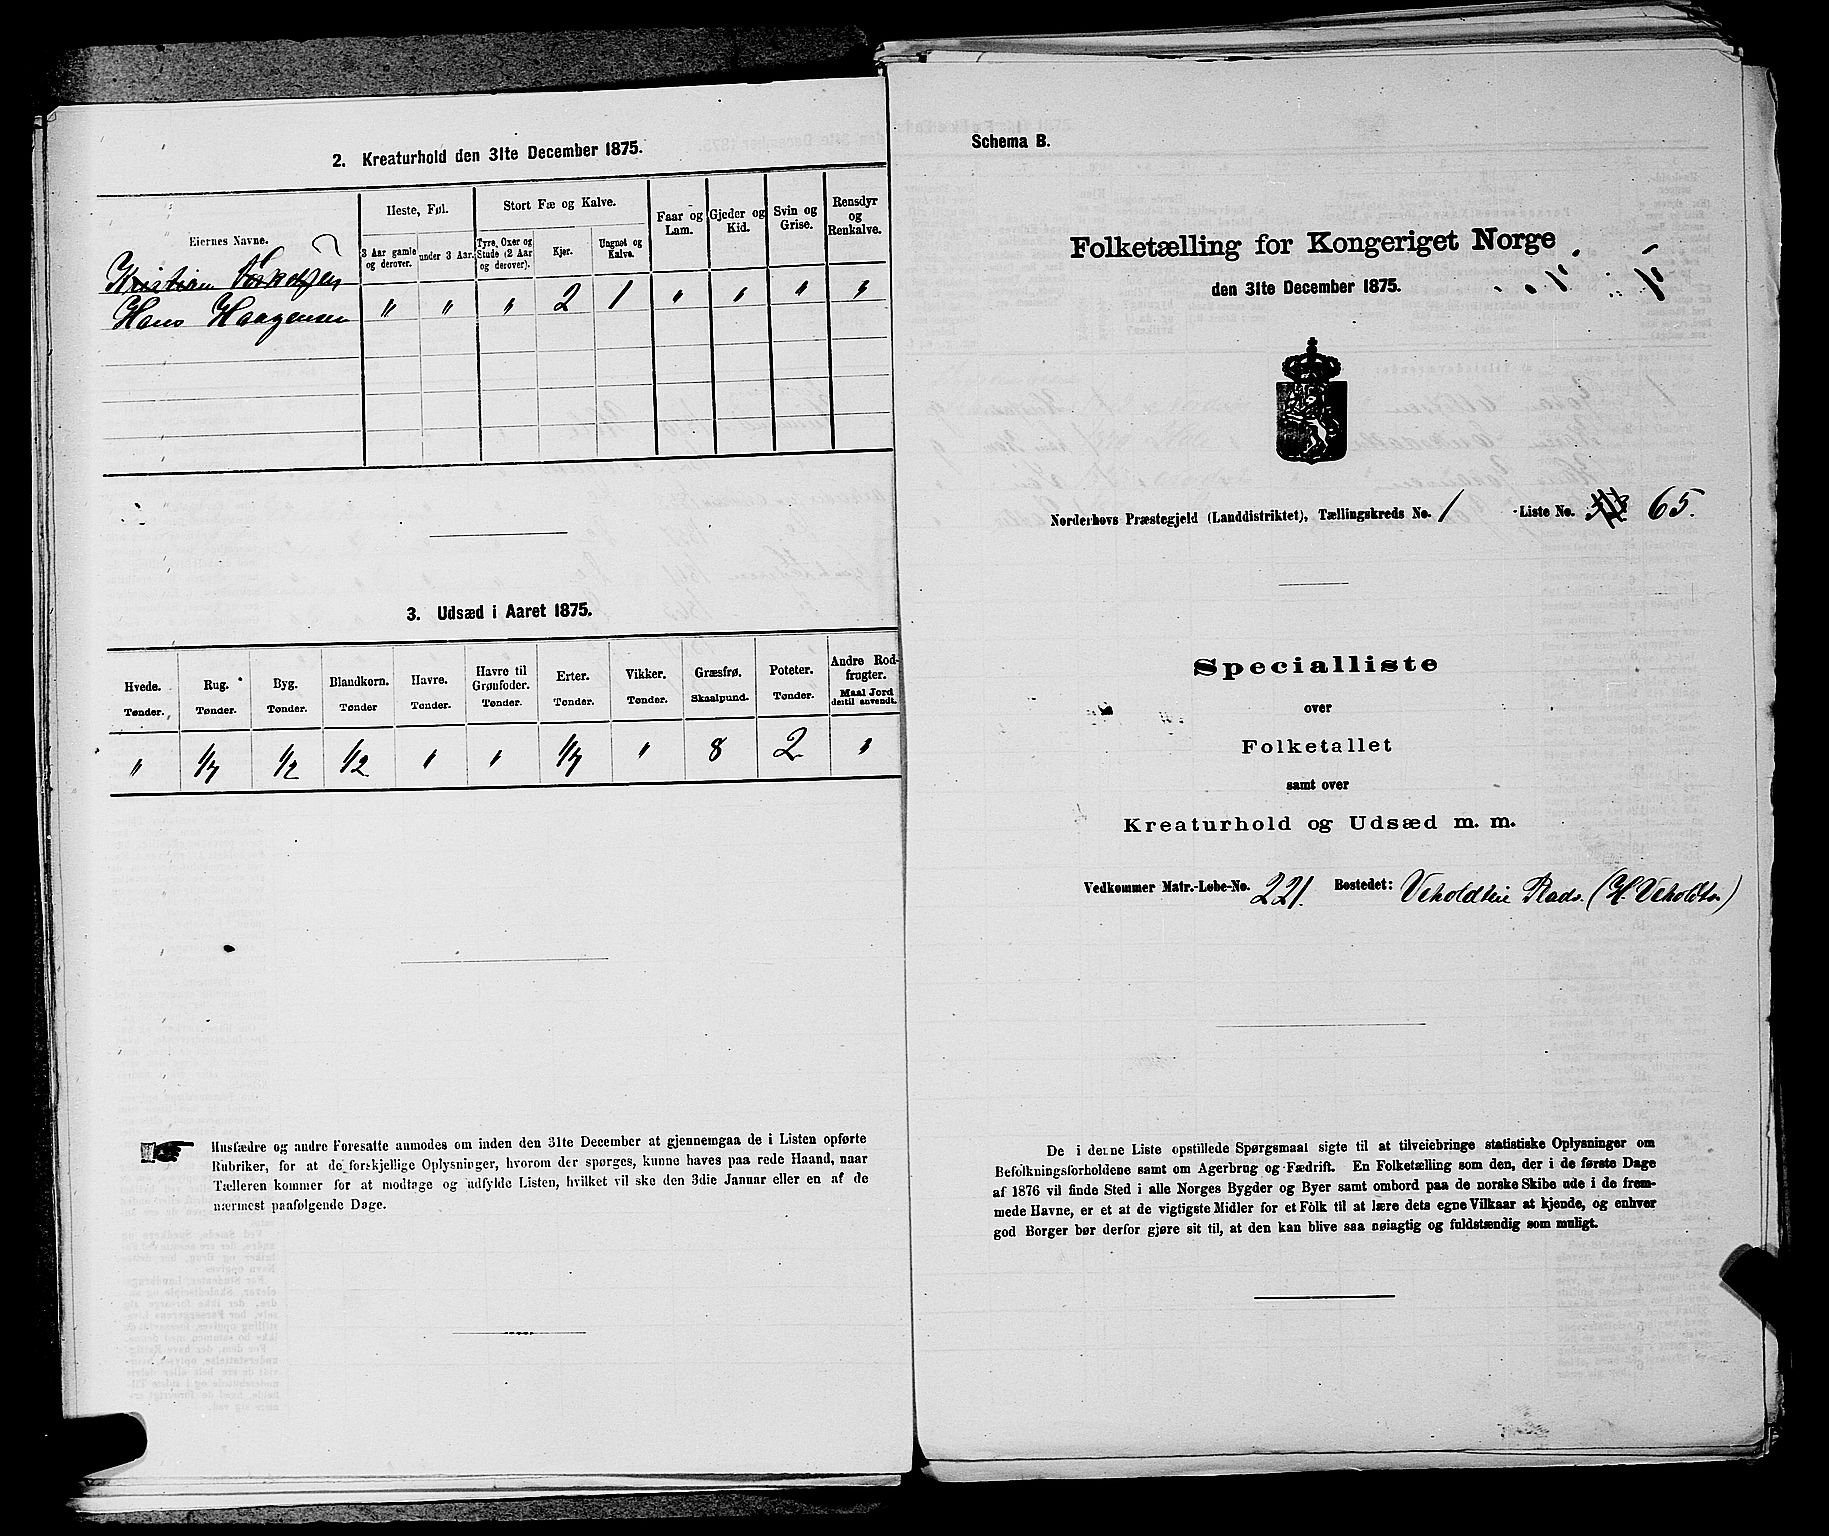 2. Kreaturhold den 31te December 1875.
Eiernes Navne.
Heste, Føl.
Stort Fæ og Kalve.
Faar og Lam.
Gjeder og Kid.
Svin og Grise.
Rensdyr og Renkalve.
3 Aar gamle og derover.
under 3 Aar.
Tyre, Oxer og Stude (2 Aar og derover).
Kjør.
Ungnøt og Kalve.
Kristian
Hans Haagensen " " " 2 1 " " " "
3. Udsæd i Aaret 1875.
Hvede. Rug. Byg. Blandkorn. Havre. Havre til Grønfoder. Erter. Vikker. Græsfrø. Poteter. Andre Rodfrugter.
Tønder. Tønder. Tønder. Tønder Tønder. Tønder. Tønder. Tønder. Skaalpund. Tønder. Maal Jord dertil anvendt.
" 1/2 1/2 " " " 8 2 "
Husfædre og andre Foresatte anmodes om inden den 31te December at gjennemgaa de i Listen opførte
Rubriker, for at de forskjellige Oplysninger, hvorom der spørges, kunne haves paa rede Haand, naar
Tælleren kommer for at modtage og udfylde Listen, hvilket vil ske den 3die Januar eller en af de
nærmest paafølgende Dage.
Schema B.
Folketælling for Kongeriget Norge
den 31te December 1875.
Norderhovs Præstegjeld (Landdistriktet), Tællingskreds No. 1 Liste No. 65.
Specialliste
over
Folketallet
samt over
Kreaturhold og Udsæd m. m.
Vedkommer Matr.-Løbe-No. 221. Bostedet: Veholdteie Plads. (H. Veholdt)
De i denne Liste opstillede Spørgsmaal sigte til at tilveiebringe statistiske Oplysninger om
Befolkningsforholdene samt om Agerbrug og Fædrift. En Folketælling som den, der i de første Dage
af 1876 vil finde Sted i alle Norges Bygder og Byer samt ombord paa de norske Skibe ude i de frem-
mede Havne, er et at de vigtigste Midler for et Folk til at lære dets egne Vilkaar at kjende, og enhver
god Borger bør derfor gjøre sit til, at den kan blive saa nøiagtig og fuldstændig som muligt.